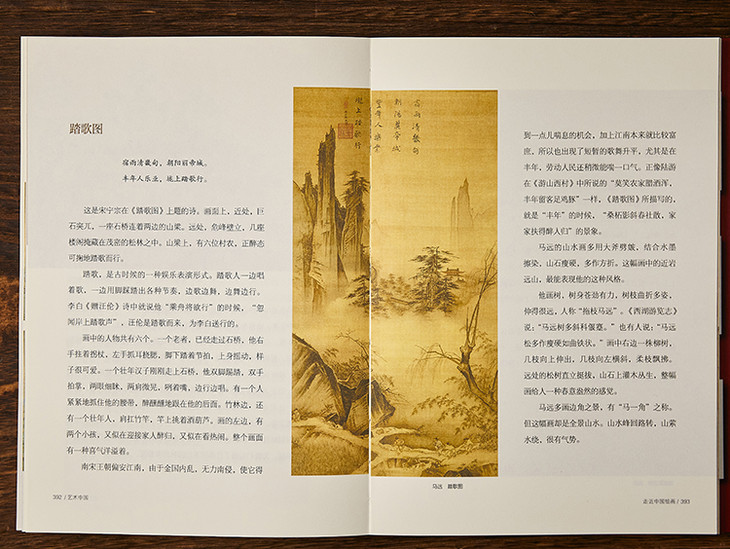 踏歌图
宿雨清畿甸，朝阳丽帝城。
丰年人乐业，垅上踏歌行。
这是宋宁宗在《踏歌图》上题的诗。画面上，近处，巨
石突兀，一座石桥连着两边的山梁。远处，危峰壁立，几座
楼阁掩藏在茂密的松林之中。山梁上，有六位村农，正醉态
可掬地踏歌而行。
踏歌，是古时候的一种娱乐表演形式。踏歌人一边唱
着歌，一边用脚踩踏出各种节奏，边歌边舞，边舞边行。
李白《赠汪伦》诗中就说他“乘舟将欲行”的时候，“忽
闻岸上踏歌声”，汪伦是踏歌而来，为李白送行的。
画中的人物共有六个。一个老者，已经走过石桥，他右
手拄着拐杖，左手抓耳挠腮，脚下踏着节拍，上身摇动，样
子很可爱。一个壮年汉子刚刚走上石桥，他双脚踢踏，双手
拍掌，两眼细眯，两肩微晃，咧着嘴，边行边唱。有一个人
紧紧地抓住他的腰带，醉醺醺地跟在他的后面。竹林边，还
有一个壮年人，肩扛竹竿，竿上挑着酒葫芦，画的左边，有
两个小孩，又似在迎接家人醉归，又似在看热闹。整个画面
有一种喜气洋溢着。
南宋王朝偏安江南，由于金国内乱，无力南侵，使它得
392 / 艺术中国
宿雨清畿甸
朝阳丽帝城
丰年人乐业
垅上踏歌行
马远 踏歌图
到一点儿喘息的机会，加上江南本来就比较富
庶，所以也出现了短暂的歌舞升平，尤其是在
丰年，劳动人民还稍微能喘一口气。正像陆游
在《游山西村》中所说的“莫笑农家腊酒浑，
丰年留客足鸡豚”一样，《踏歌图》所描写的，
就是“丰年”的时候，“桑柘影斜春社散，家
家扶得醉人归”的景象。
马远的山水画多用大斧劈皴，结合水墨
擦染，山石瘦硬，多作方折。这幅画中的近岩
远山，最能表现他的这种风格。
他画树，树身苍劲有力，树枝曲折多姿，
伸得很远，人称“拖枝马远”。《西湖游览志》
说：“马远树多斜科偃蹇。”也有人说：“马远
松多作瘦硬如曲铁状。”画中右边一株柳树，
几枝向上伸出，几枝向左横斜，柔枝飘拂。
远处的松树直立挺拔，山石上灌木丛生，整幅
画给人一种春意盎然的感觉。
马远多画边角之景，有“马一角”之称。
但这幅画却是全景山水。山水峰回路转，山萦
水绕，很有气势。
走近中国绘画 / 393